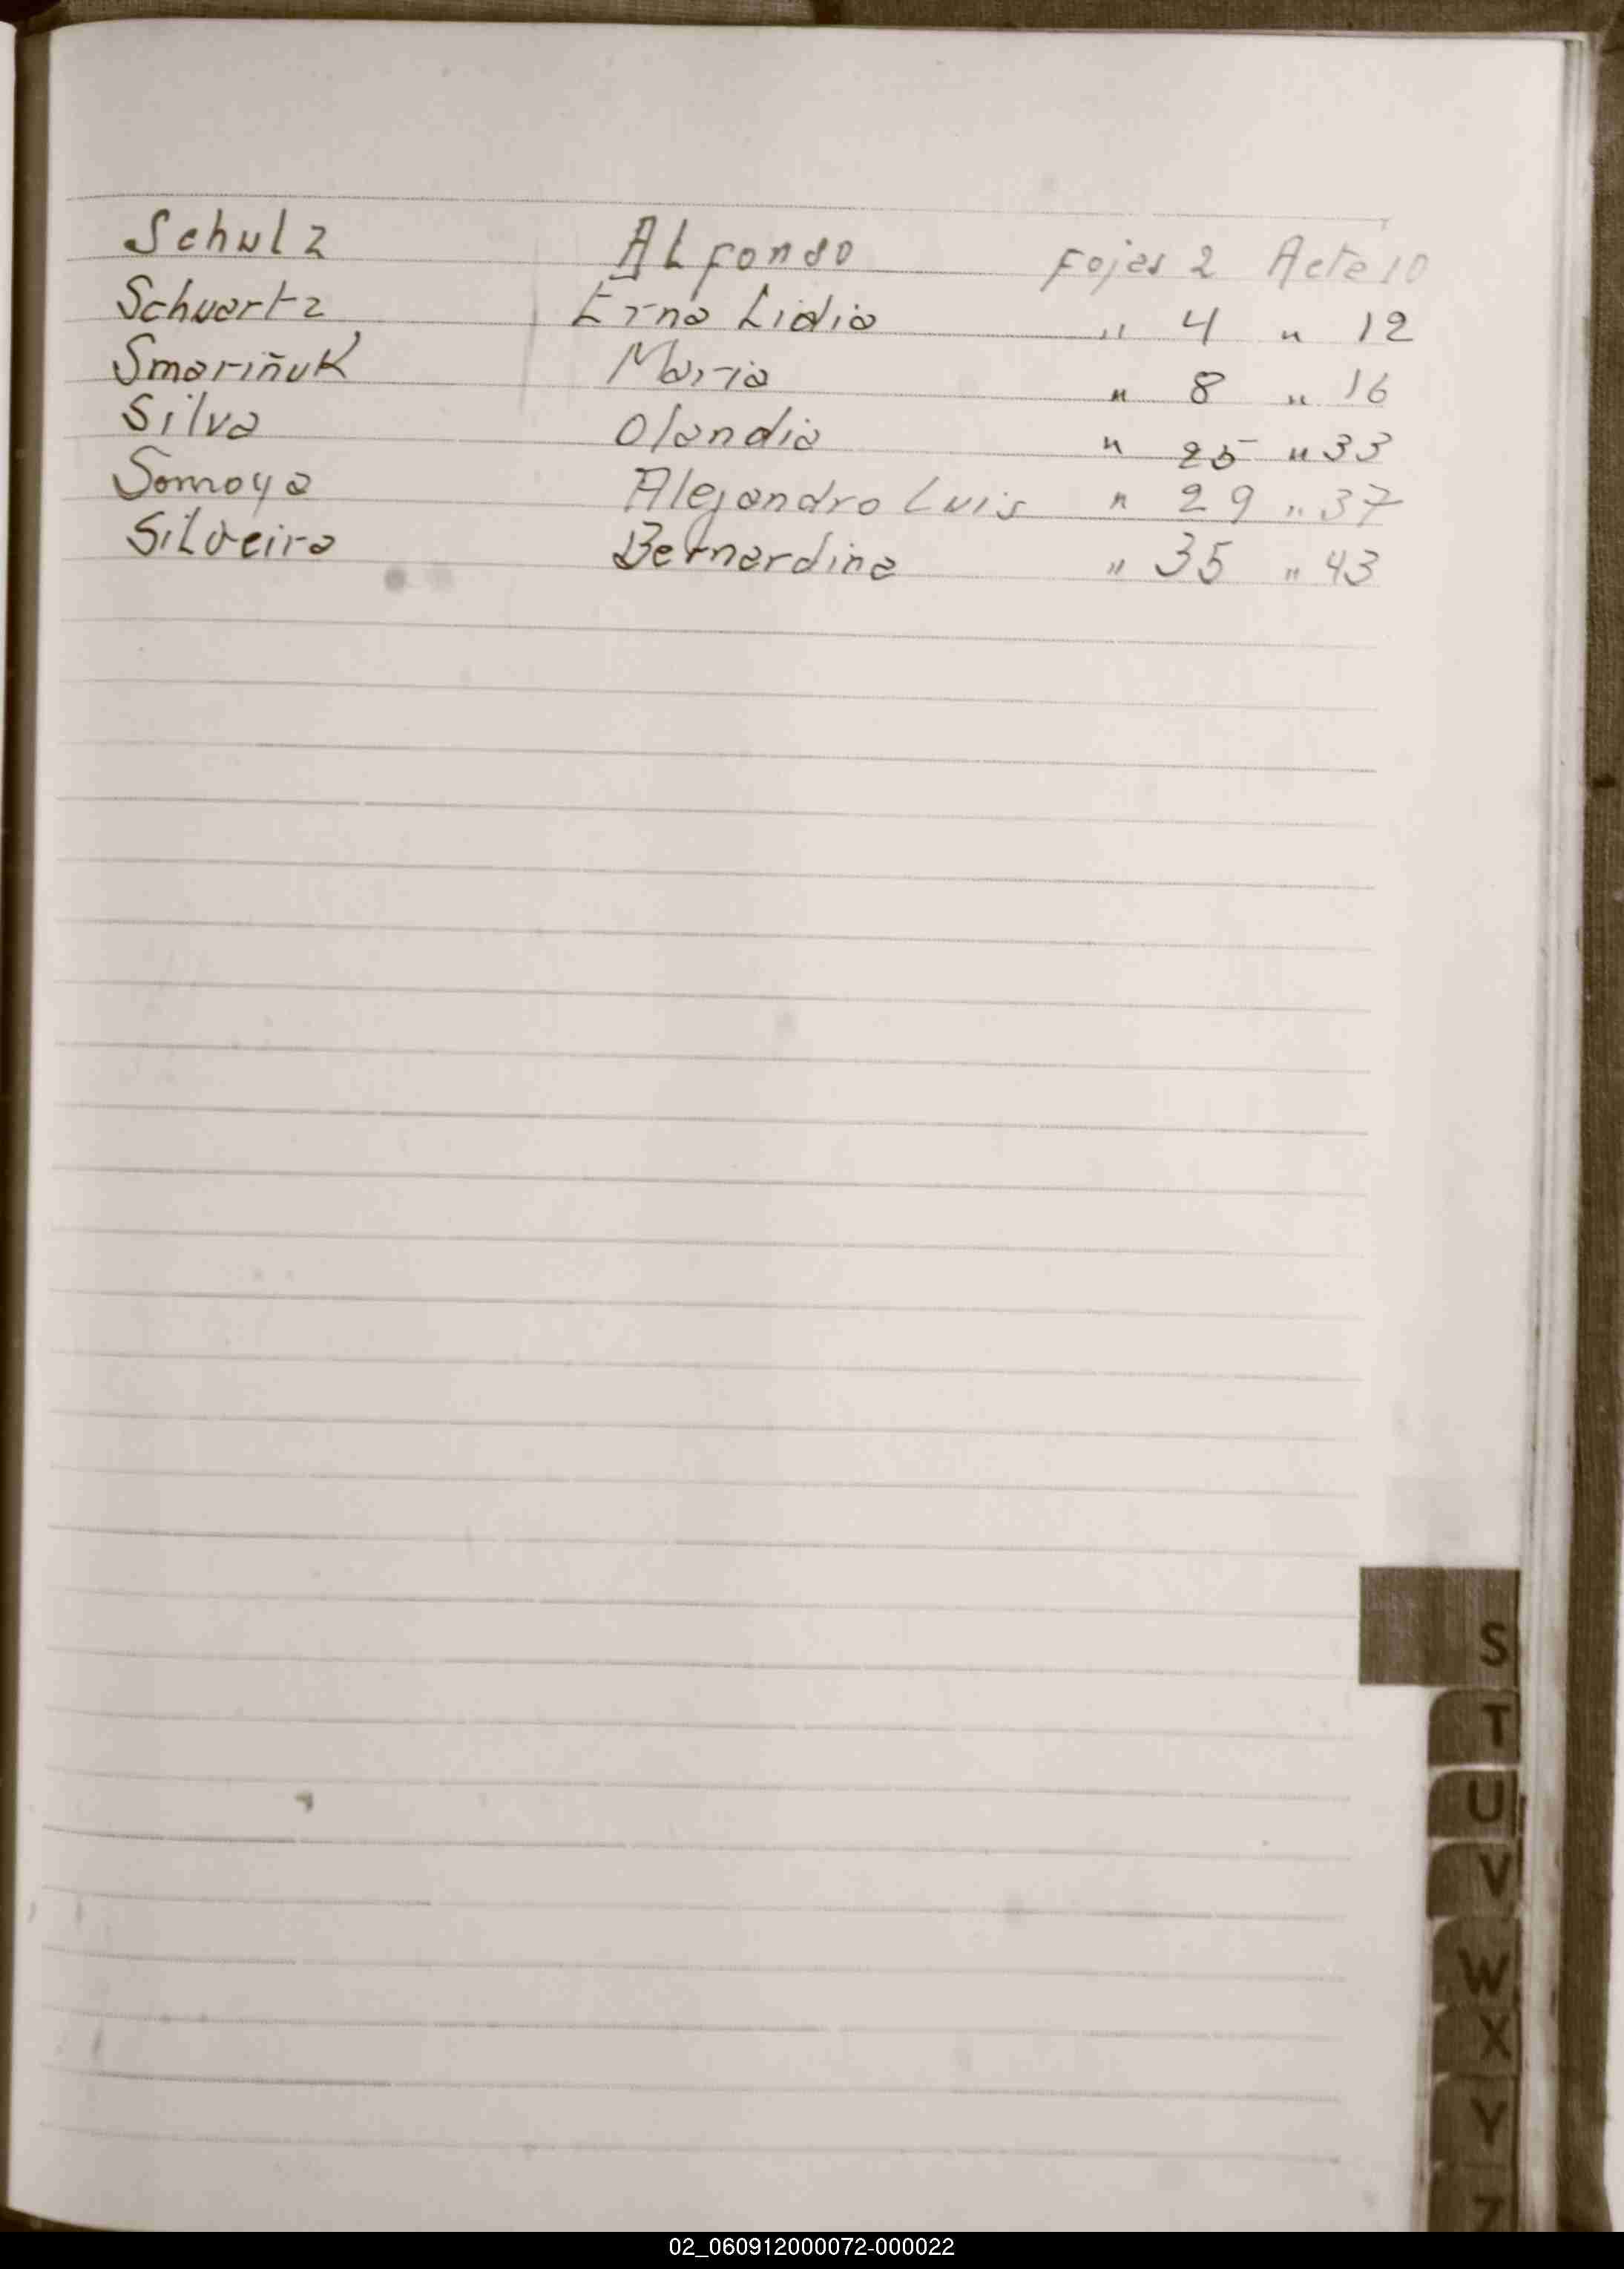 Schulz ALfonso Fojas 2 Acta 10
Schuartz Erna Lidia " 4 " 12
Smariñuk Maria " 8 " 16
Silva Olandia " 25 " 33
Somoya Alejandro Luis " 29 " 37
SiLveira Bernardina " 35 " 43
S
T
U
V
W
X
Y
Z
02_060912000072-000022